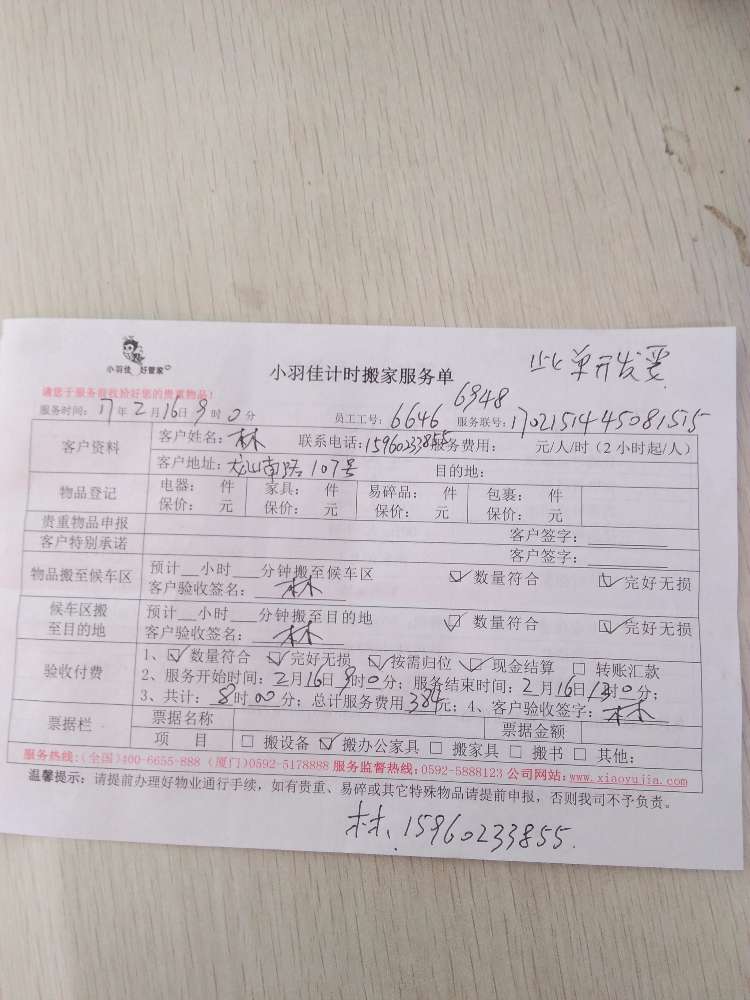 小羽佳 好管家
小羽佳计时搬家服务单
此单开发票
请您于服务前收拾好您的贵重物品!
6948
服务时间: 17年2月16日9时0分 员工工号: 6646 服务联号: 1702151445081515
客户资料 客户姓名: 林 联系电话: 15960233855 服务费用: 元/人/时 (2小时起/人)
客户地址: 龙山南路107号 目的地:
物品登记 电器: 件 家具: 件 易碎品: 件 包裹: 件
保价: 元 保价: 元 保价: 元 保价: 元
贵重物品申报 客户签字:
客户特别承诺 客户签字:
物品搬至候车区 预计__小时___分钟搬至候车区 ☑数量符合 ☑完好无损
客户验收签名: 林
候车区搬至目的地 预计__小时___分钟搬至目的地 ☑数量符合 ☑完好无损
客户验收签名: 林
验收付费 1、☑数量符合 ☑完好无损 ☑按需归位 ☑现金结算 □ 转账汇款
2、服务开始时间: 2月16日9时0分; 服务结束时间: 2月16日13时0分;
3、共计: 8时00分; 总计服务费用384元; 4、客户验收签字: 林
票据栏 票据名称 票据金额
项 目 □ 搬设备 ☑搬办公家具 □ 搬家具 □ 搬书 □ 其他:
服务热线:(全国)400-6655-888 (厦门)0592-5178888 服务监督热线:0592-5888123 公司网站:www.xiaoyujia.com
温馨提示: 请提前办理好物业通行手续, 如有贵重、易碎或其它特殊物品请提前申报, 否则我司不予负责。
林、15960233855.